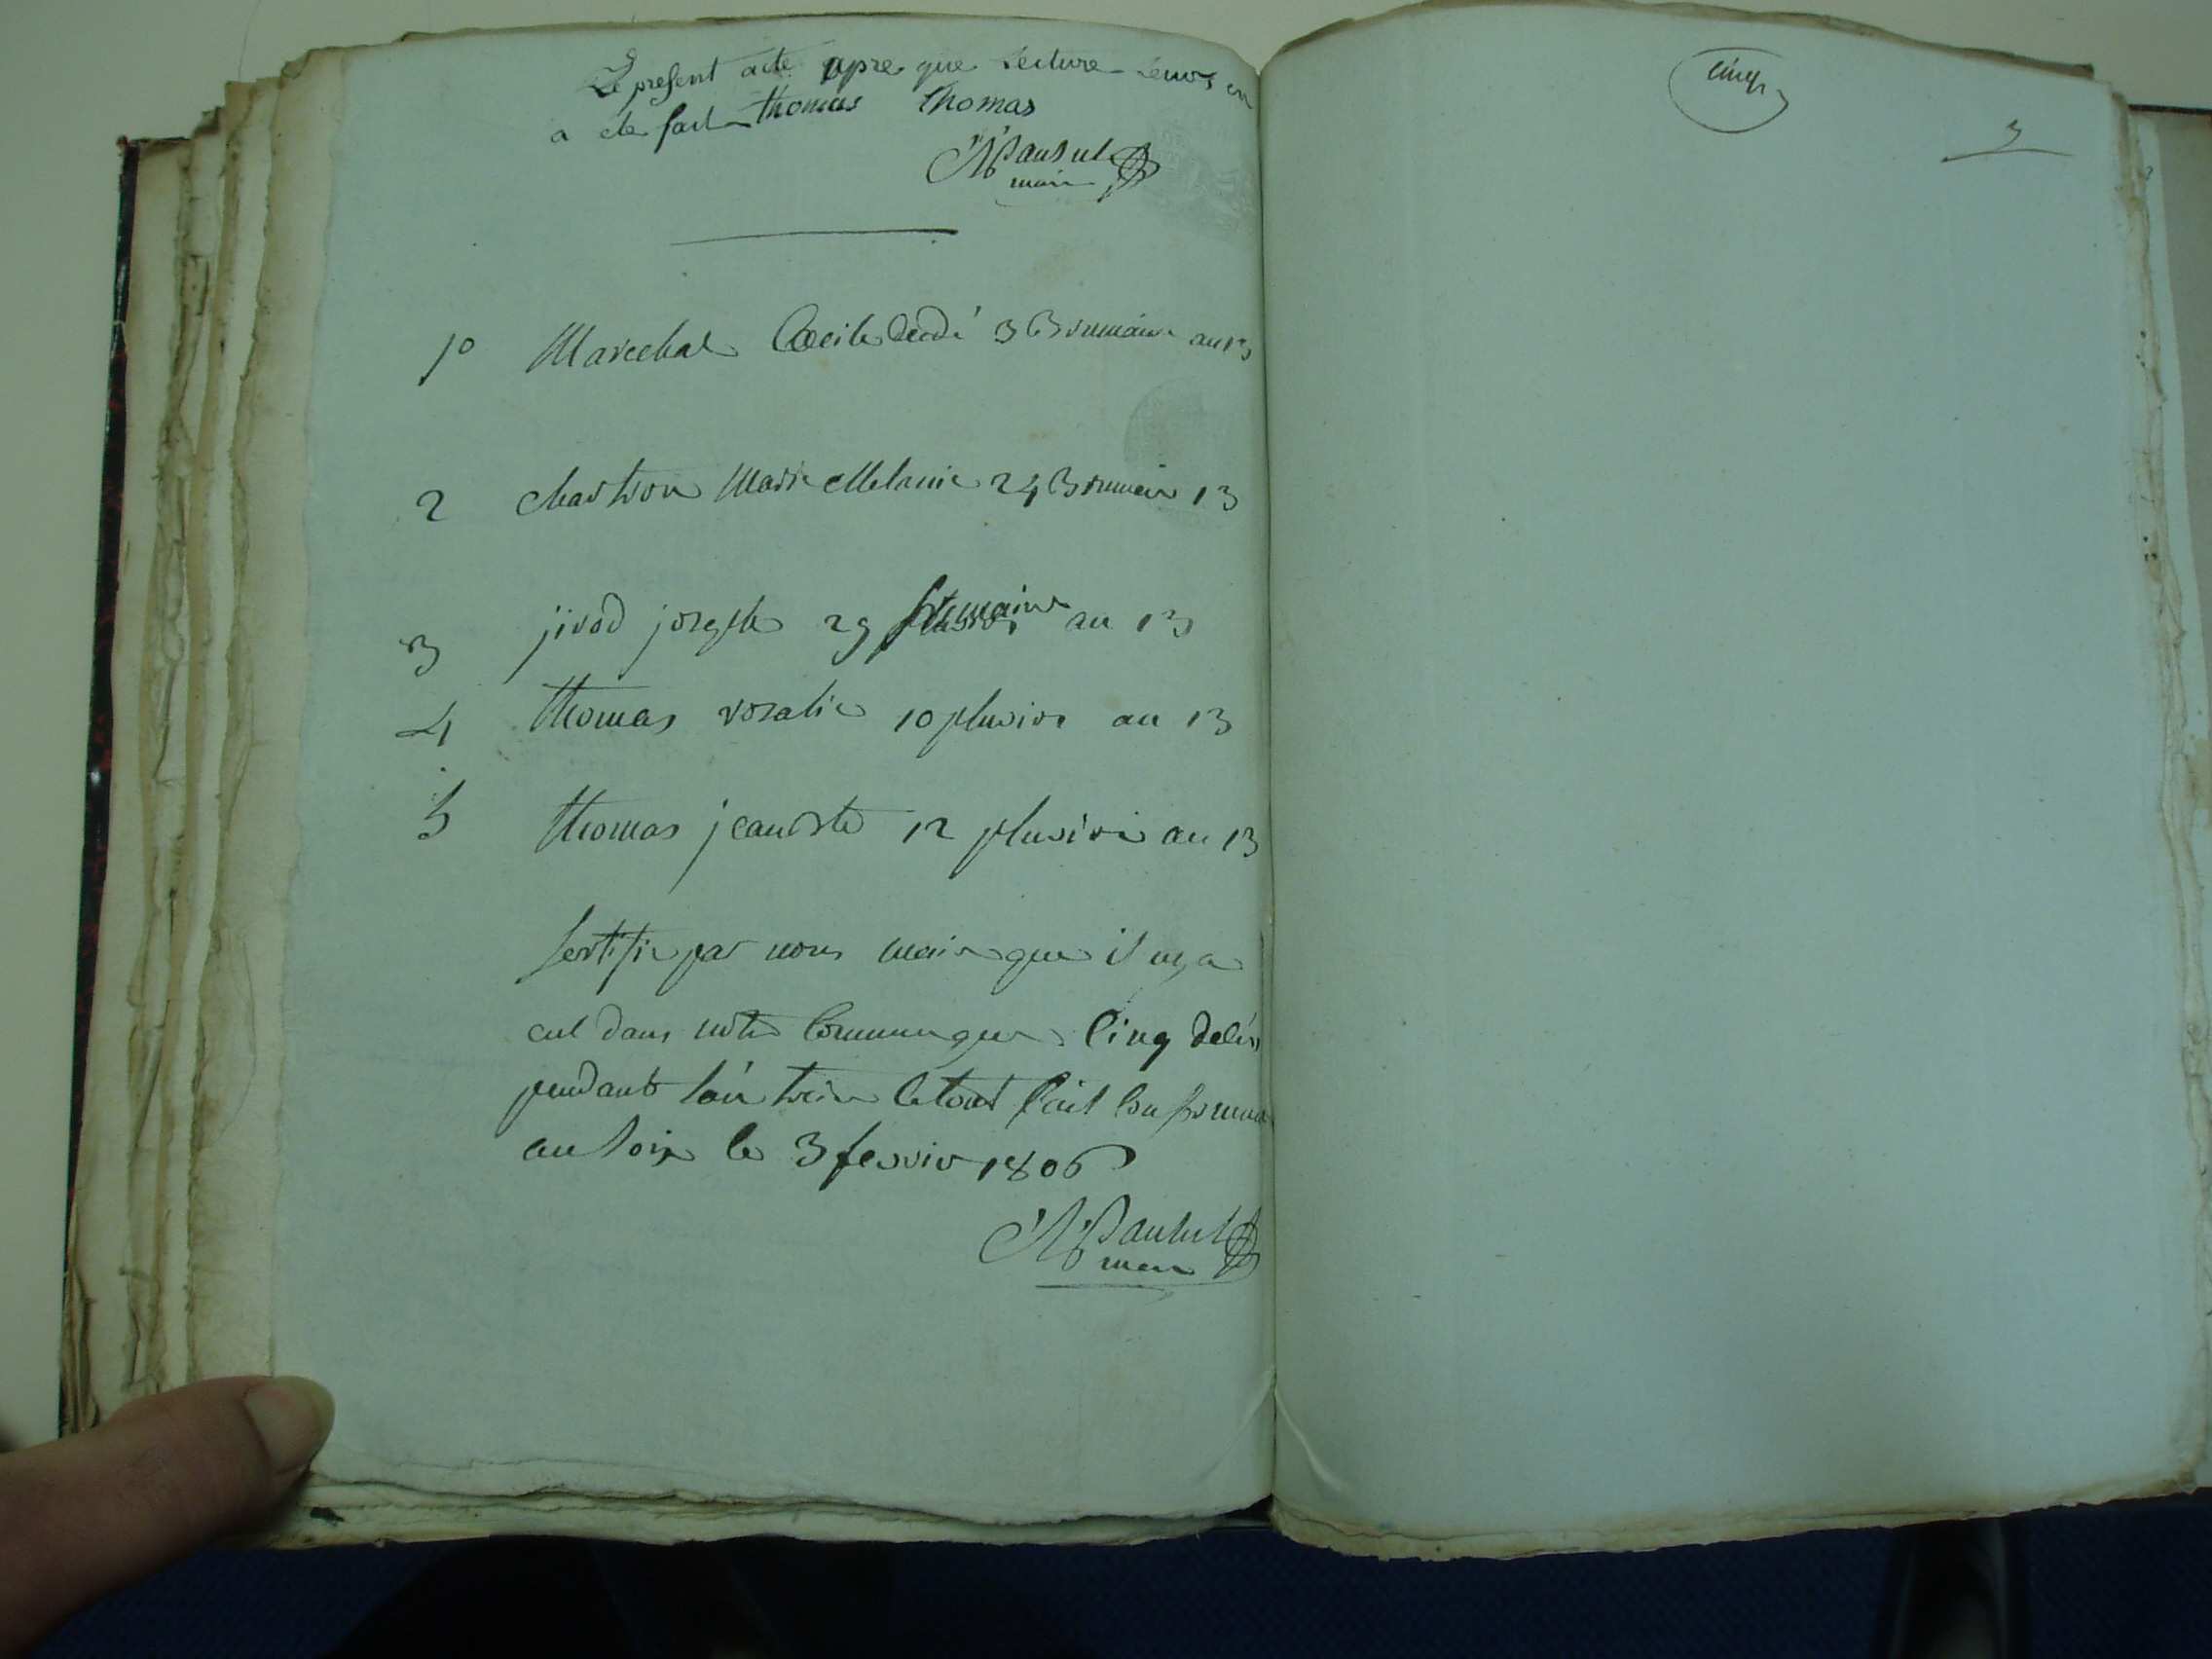 Le present acte apre que Lecture Leurs en
a ete fait thomas thomas
maire
1º Marechal Cecile decdé 3 Brumaire an 13
2 chartron Marie Melanie 24 Brumair 13
3 jirod joseph 29 frimaire an 13
4 thomas rosalie 10 pluvios an 13
5 thomas jeanbte 12 pluviose an 13
Sertifie par nous maire que il ny a
eul dans notre Commungue Cinq delés
pendant lan treize le tout fait Conformement
au loix le 3 fevrier 1806
maire
cinq
5